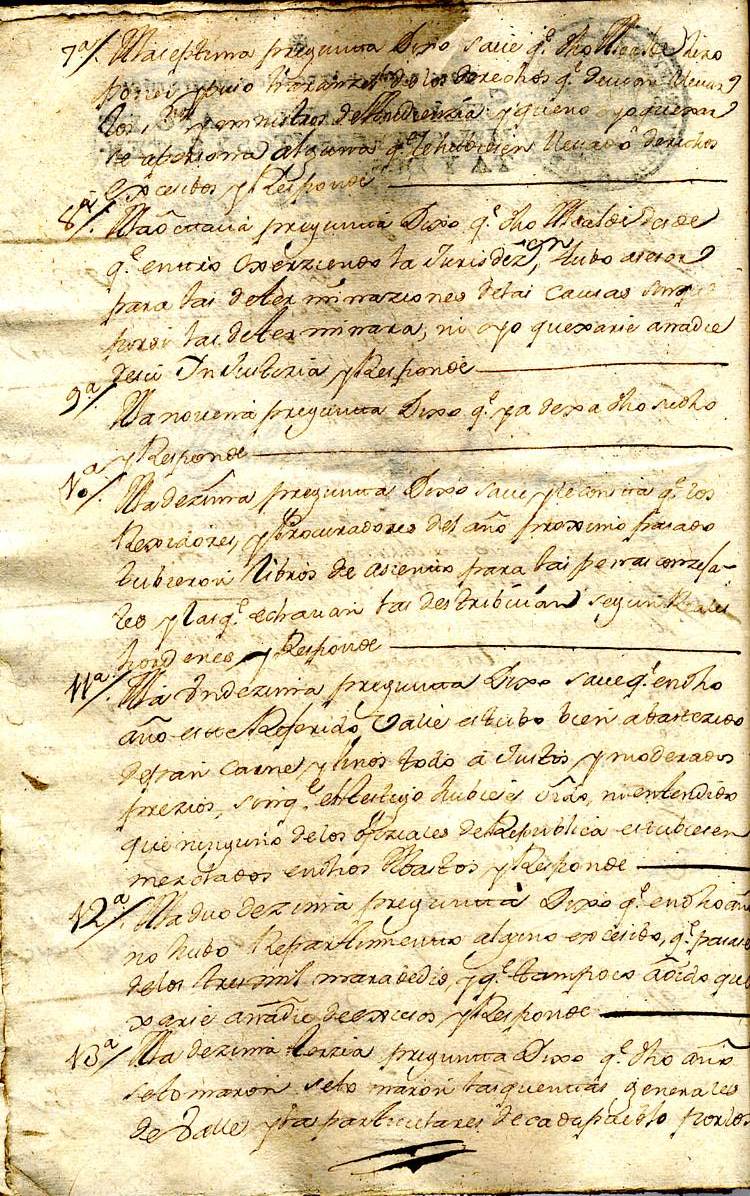 7ª/. Ala septima pregunta Dixo save q.e dho Alcalde hizo
poner y puso Aranzel de los derechos q.e devian llevar
los ministros de Audienzia y que no oyo quexar
se apersona alguna q.e le hubiesen llevado derechos
exsesibos y Responde
8ª/. Ala octava pregunta Dixo q.e dho Alcalde desde
q.e entro exerziendo la Jurisdez.on tubo asesor
para las determinaziones de las causas sin q.e
por si las determinara, ni oyo quexarse anadie
de su Injustizia y Responde
9ª/. Ala novena pregunta Dixo q.e ya dexa dho sudho
y Responde
10ª/. Ala dezima pregunta Dixo save y le consta q.e los
Rexidores, y Procuradores del año proximo pasado
tubieron libros de asiento para las penas
y las q.e echavan las destribuian segun Reales
hordenes y Responde
11ª/. Ala Undezima pregunta Dixo save q.e en dho
año este Referido Valle estubo bien abastezido
de pan carne y vinos todo a Justos y moderados
prezios, sin q.e el testigo hubiese oido, ni entendido
que ninguno de los ofiziales de Republica estubiesen
mezclados en dhos Abastos y Responde
12ª/. Ala duodezima pregunta Dixo q.e en dho año
no hubo Repartimiento alguno exsesibo, q.e pasase
de los tres mil maravedis, y q.e tampoco a oido que
xarse anadie de exsesos y Responde
13ª/ Ala dezima terzia pregunta Dixo q.e dho año
se tomaron se tomaron las quentas generales
de Valle y las particulares de cada pueblo por los